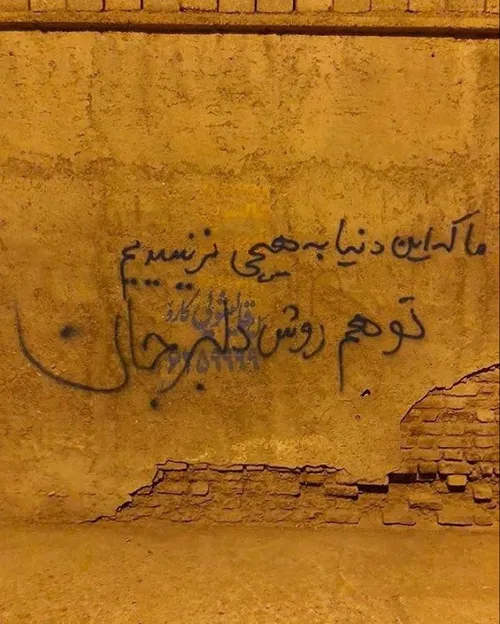 ما که این دنیا به هیچی نرسیدیم
تو هم روش دلبر جان
قالیشویی کارو